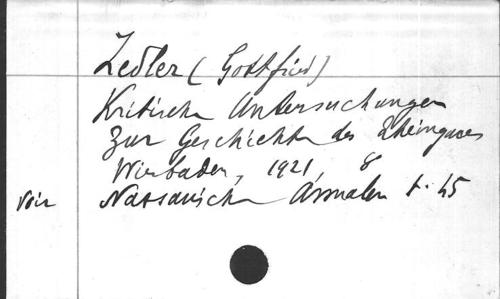 Zedler (Gottfried)
Kritische Untersuchungen
zur Geschichte des Rheingaues
Wiesbaden, 1921, 8
voir Nassauische Annalen t. 45